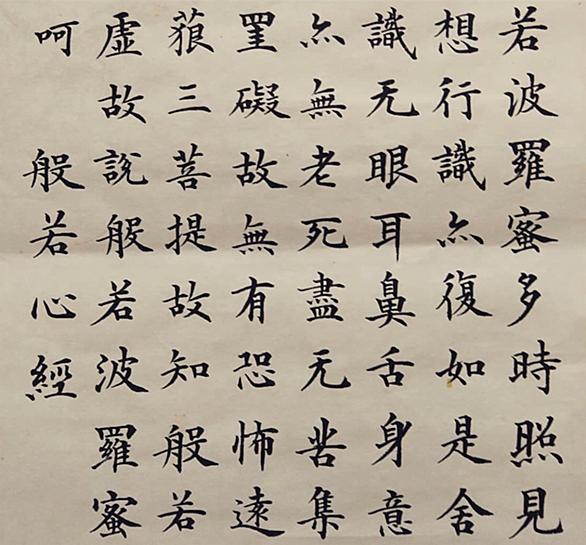 若波羅蜜多時照見
想行識亦復如是舍
識无眼耳鼻舌身意
亦無老死盡无苦集
罣礙故無有恐怖遠
藐三菩提故知般若
虛故說般若波羅蜜
呵 般若心經